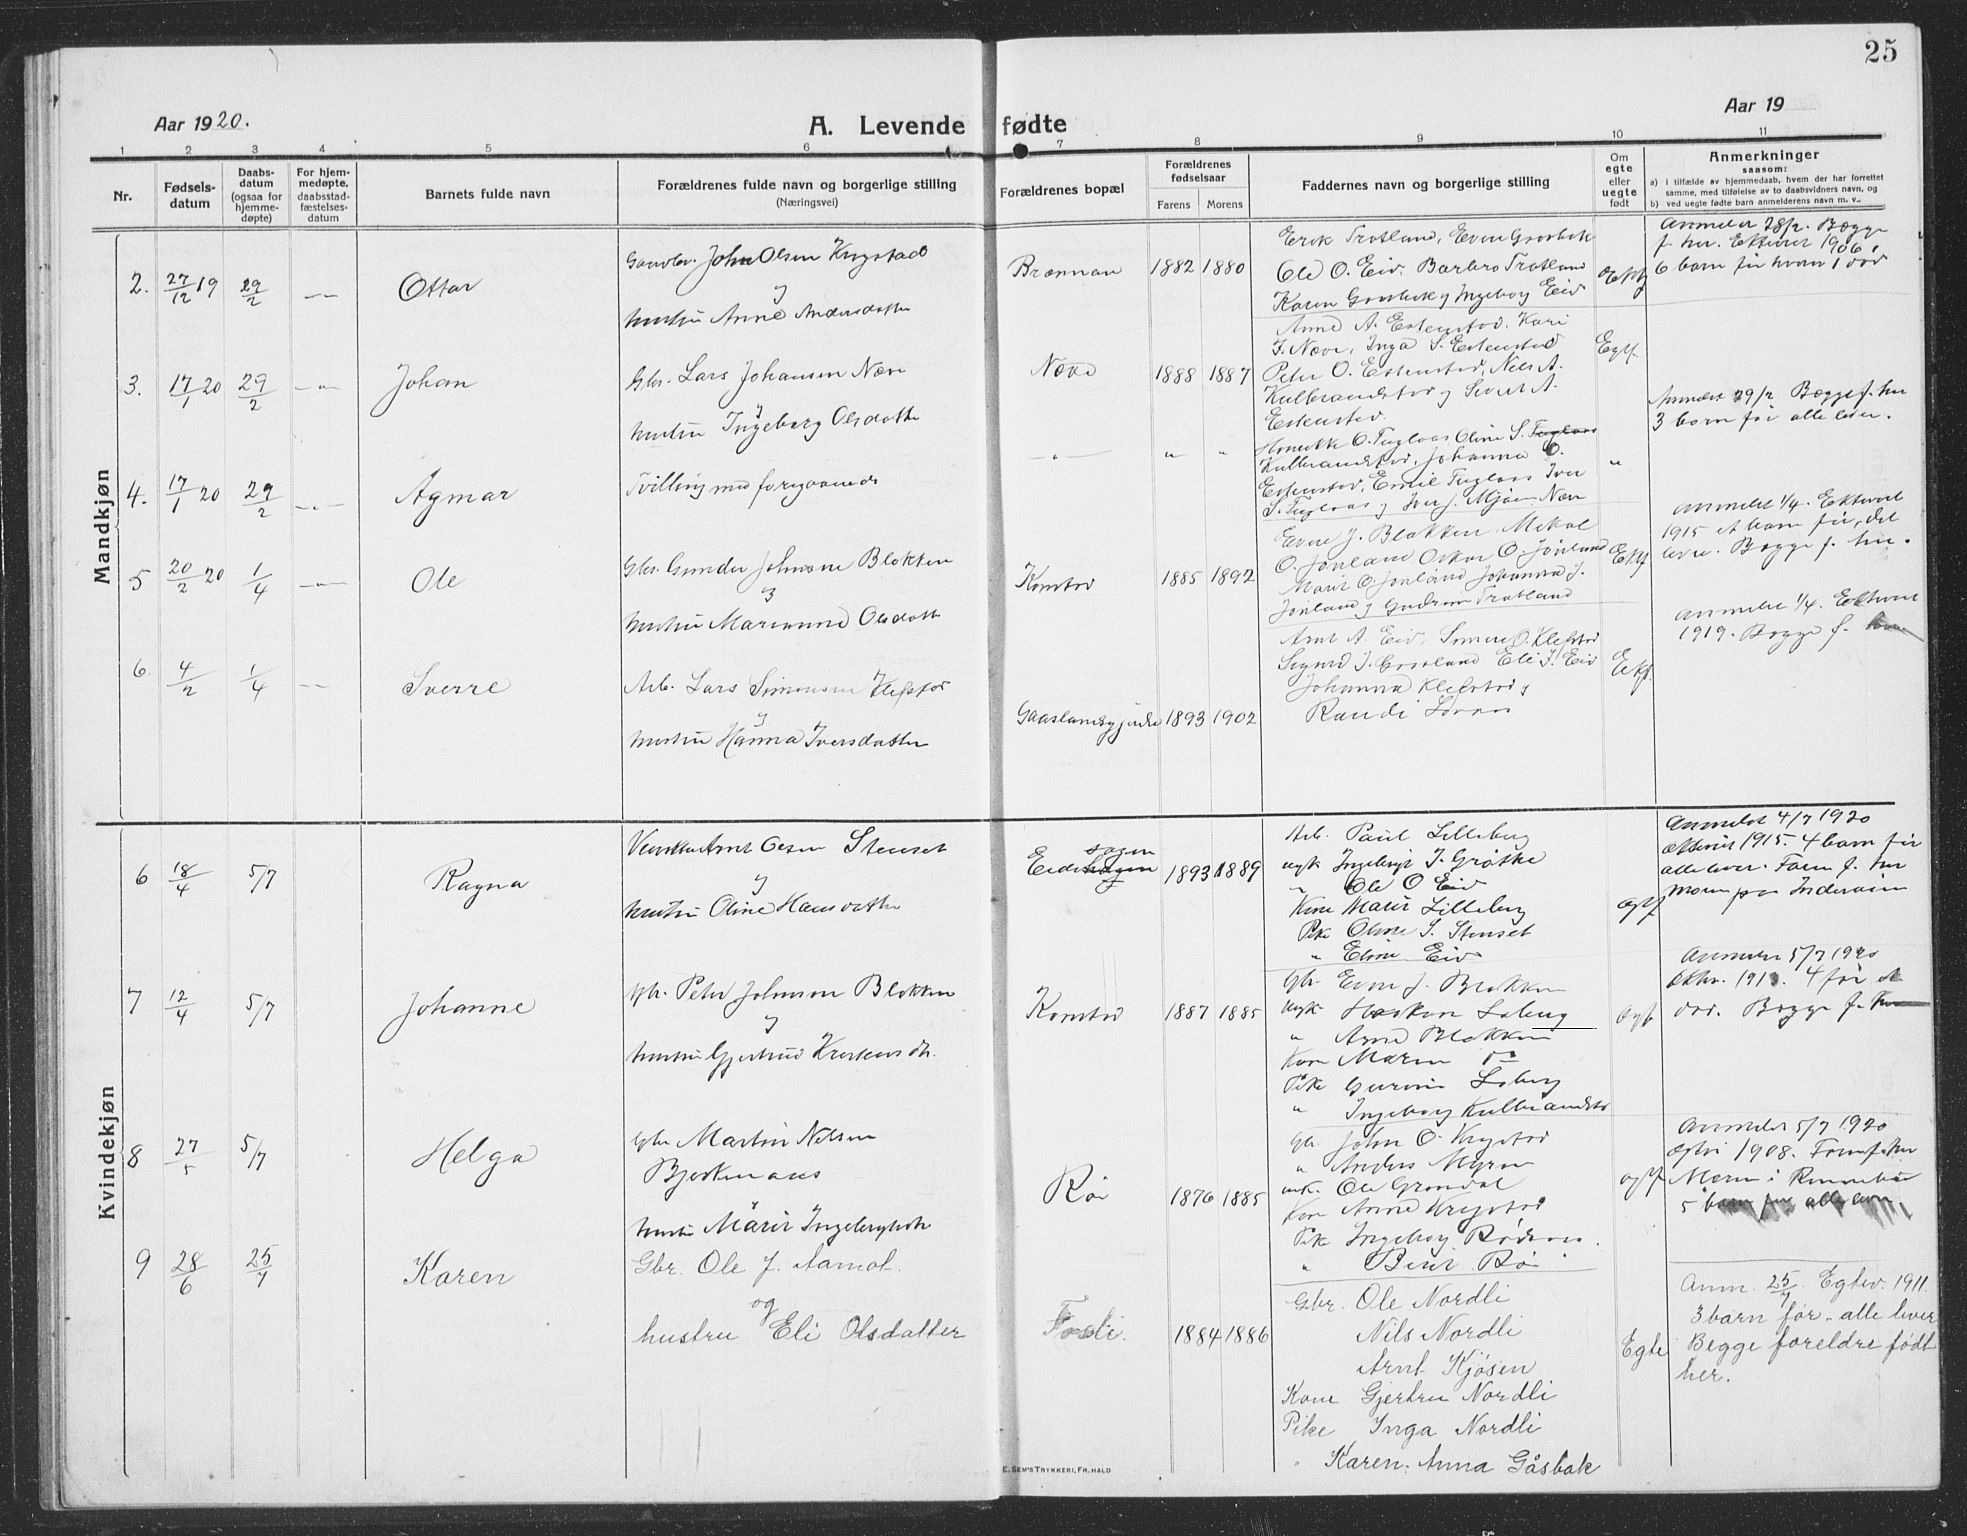 25
Aar 1920.
A. Levende fødte
Aar 19
1 2 3 4 5 6 7 8 9 10 11
Nr.
Fødsels-
datum
Daabs-
datum
(ogsaa for
hjemme-
døpte)
For hjem-
medøpte,
daabsstad-
fæstelses-
datum
Barnets fulde navn
Forældrenes fulde navn og borgerlige stilling
(Næringsvei)
Forældrenes bopæl
Forældrenes
fødselsaar
Farens Morens
Faddernes navn og borgerlige stilling
Om
egte
eller
uegte
født
Anmerkninger
saasom:
a) i tilfælde av hjemmedaab, hvem der har forrettet
samme, med tilføielse av to daabsvidners navn, og
b) ved uegte fødte barn anmelderens navn m. v..
Mandkjøn
2. 27/12 19 29/2 -"- Ottar
John Olsen Krygstad
y
hustru Anne Andersdatter
1882 1880
Erik Trotland, Even
Ole O. Eid, Barbro Trotland
Karen y Ingeborg Eid
Anmeldt 28/2. Begge
f. her. Ektevet 1906.
6 barn før hvorav 1 død
3. 17/1 20 29/2 -"- Johan
Gbr. Lars Johansen Næve
y
hustru Ingeborg Olsdatter
Næve 1888 1887
Anne A. Estenstad, Kari
J. Næve, Inga S. Estenstad
Peter O. Estenstad, Nils A.
Kulbrandstad y Sivert A.
Estenstad.
Egtf
Anmeldt 29/2 Begge f. her
3 barn før alle lever.
4. 17/1 20 29/2 -"- Agmar
Tvilling med foregaaende
-"- " "
O. Fuglaas Oline S. Fuglaas
Kulbrandstad, Johanna O.
Estenstad, Emil Fuglaas Iver
S. Fuglaas y Iver J. Næve
"
5 20/2 20 1/4 -"- Ole
Gbr. Gunder Johnsen Blokken
y
hustru Marianne Olsdatter
Konstad 1885 1892
Even J. Blokken Mikal
O. Jønland Oskar O. Jønland
Marit O. Jønland Johanna J.
Jønland y Gudrun Trotland
Ektf
Anmeldt 1/4. Ektevet
1915 et barn før, det
lever. Begge f. her.
6. 4/2 1/4 -"- Sverre
Arb. Lars Simonsen Klefstad
y
hustru Hanna Iversdatter
1893 1902
Arnt A. Eid, O. Klefstad
Sigurd J. Eli J. Eid
Johanna Klefstad y
Randi
Ektf.
Anmeldt 1/4. Ektevet
1919. Begge f. her
Kvindekjøn
6 18/4 5/7 Ragna
Arnt Olsen Stenset
y
hustru Oline Hansdatter
1893 1889
Arb. Paul Lilleberg
ungk J. Grøtte
" Ole O Eid
Kone Marit Lilleberg
Pike Oline S. Stenset
" Eline Eid
Anmeldt 4/7 1920
1915. 4 barn før
alle lever. Faren f. her
Moren paa Inderøien
7 12/4 5/7 Johanne
Gbr. Peter Johnson Blokken
y
hustru Gjertrud
Konstad 1887 1885
Gbr. Even J. Blokken
ungk Haakon Loberg
" Arne Blokken
Kone Maren do
Pike Loberg
" Ingeborg Kulbrandstad
Anmeldt 5/7 1920
4 før
død. Begge f. her
8 27/5 5/7 Helga
Gbr Martin Nilsen
Bjerkenaas
hustru Marit
Rø 1876 1885
Gbr. John O. Krygstad
" Anders Myren
ungk. Ole Grøndal
Kone Anne Krygstad
Pike Ingeborg
" Berit Rø
Anmeldt 5/7 1920
1908. Faren f. her
Moren i
5 barn før alle lever.
9 28/6 25/7 Karen
Gbr. Ole J. Aamot.
og
hustru Eli Olsdatter
Fosli. 1884 1886
Gbr. Ole Nordli
Nils Nordli
Arnt Kjøsen
Kone Gjertru Nordli
Pike Inga Nordli
" Karen Anna Gåsbak
Egte
Anm. 25/7. Egtev. 1911.
3 barn før - alle lever
Begge foreldre født
her.
E. SEM'S TRYKKERI, FR.HALD